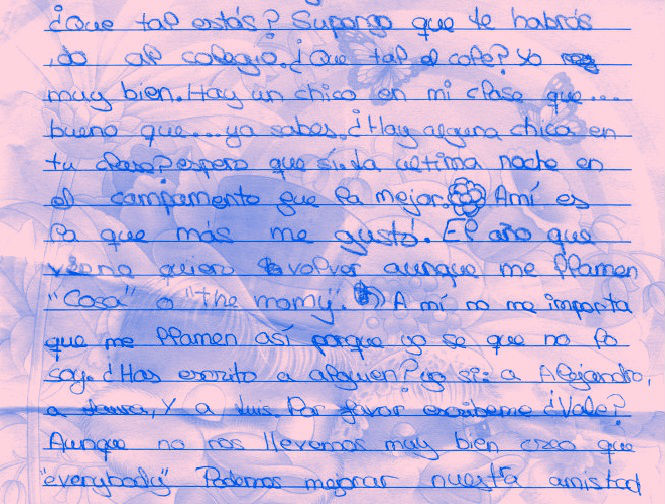 ¿Que tal estás? Supongo que te habrás
ido al colegio. ¿Que tal el cole? Yo
muy bien. Hay un chico en mi clase que...
bueno que... ya sabes. ¿Hay alguna chica en
tu clase? espero que sí. La ultima noche en
el campamento fue la mejor. Amí es
la que más me gustó. El año que
viene quiero volver aunque me llamen
"Cosa" o "the momy". A mí no me importa
que me llamen así porque yo se que no lo
soy. ¿Has escrito a alguien? yo si: a Alejandro,
a Laura, Y a Luis. Por favor escribeme ¿Vale?
Aunque no nos llevemos muy bien creo que
"everybody" Podemos mejorar nuestra amistad